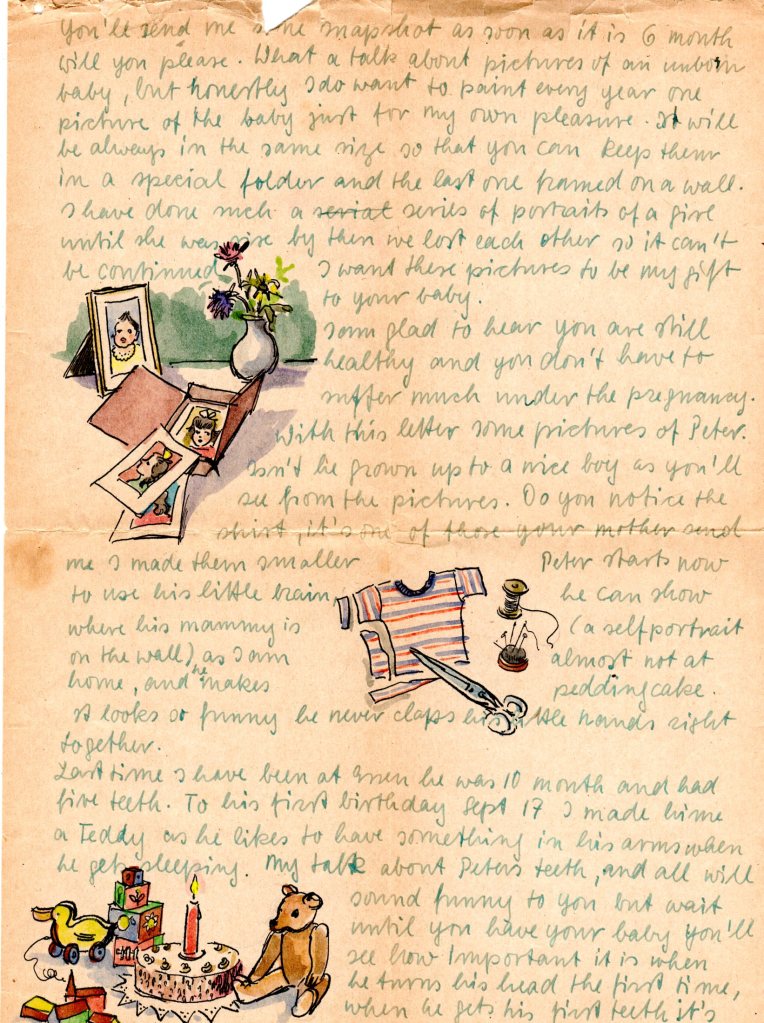 You'll send me some snapshot as soon as it is 6 month
will you please. What a talk about pictures of an unborn
baby, but honestly I do want to paint every year one
picture of the baby just for my own pleasure. It will
be always in the same size so that you can keep them
in a special folder and the last one framed on a wall.
I have done such a serial series of portraits of a girl
until she was by then we lost each other so it can't
be continued. I want these pictures to be my gift
to your baby.
I am glad to hear you are still
healthy and you don't have to
suffer much under the pregnancy.
With this letter some pictures of Peter.
Isn't he grown up to a nice boy as you'll
see from the pictures. Do you notice the
shirt, it's one of those your mother send
me I made them smaller Peter starts now
to use his little brain, he can show
where his mammy is (a selfportrait
on the wall), as I am almost not at
home, and he makes peddingcake.
It looks so funny he never claps his little hands right
together.
Last time I have been at Essen he was 10 month and had
five teeth. To his first birthday Sept 17 I made hime
a Teddy as he likes to have something in his arms when
he gets sleeping. My talk about Peters teeth, and all will
sound funny to you but wait
until you have your baby you'll
see how important it is when
he turns his head the first time,
when he gets his first teeth it's